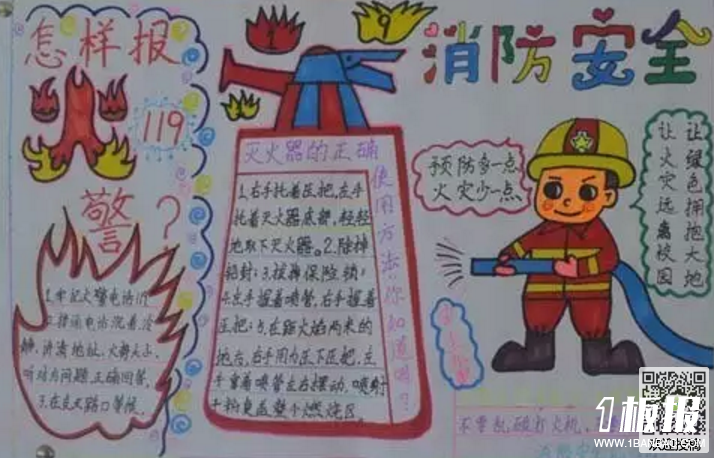 怎样报
119
警?
1.牢记火警电话119
2.接通电话沉着冷
静,讲清地址,火势大小,
听对方问题,正确回答,
3.在交叉路口等候。
灭火器的正确
使用方法,你知道吗?
1.右手托着压把,左手
托着灭火器底部,轻轻
地取下灭火器。2.除掉
铅封;3.拔掉保险销;
4.左手握着喷管,右手握着
压把;5.在距火焰两米的
地方,右手用力压下压把,左
手拿着喷管左右摆动,喷射
干粉覆盖整个燃烧区。
1
9
消防安全
预防多一点
火灾少一点
让绿色拥抱大地
让火灾远离校园
1板报
WWW.1BANBAO.COM
欢迎投稿